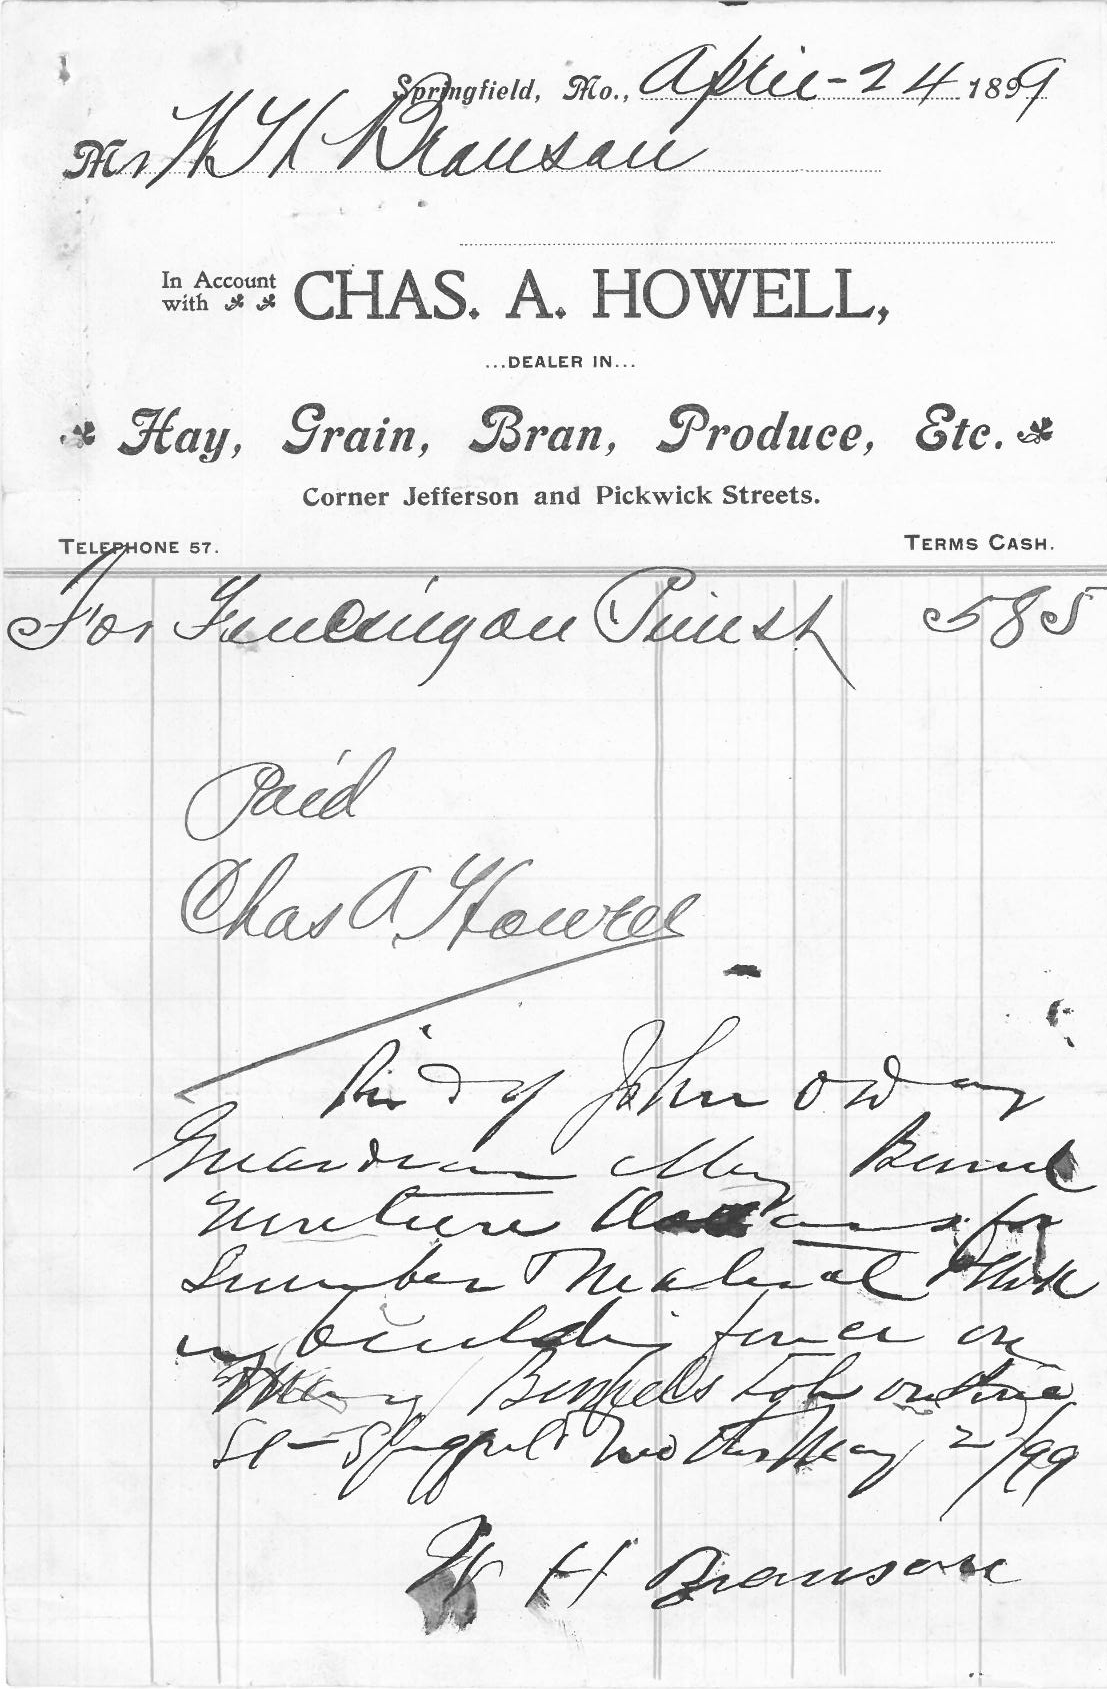 Springfield, Mo., April - 24 1899
Mr W H Branson
In Account
with
CHAS. A. HOWELL,
...DEALER IN...
Hay, Grain, Bran, Produce, Etc.
Corner Jefferson and Pickwick Streets.
TELEPHONE 57.
TERMS CASH.
For Fencing on Pine St 585
Paid
Chas A. Howell
of John
Guardian May
for
Lumber Material & Work
in building fence on
May lot on Pine
St - Mo this May 2/99
W H Branson